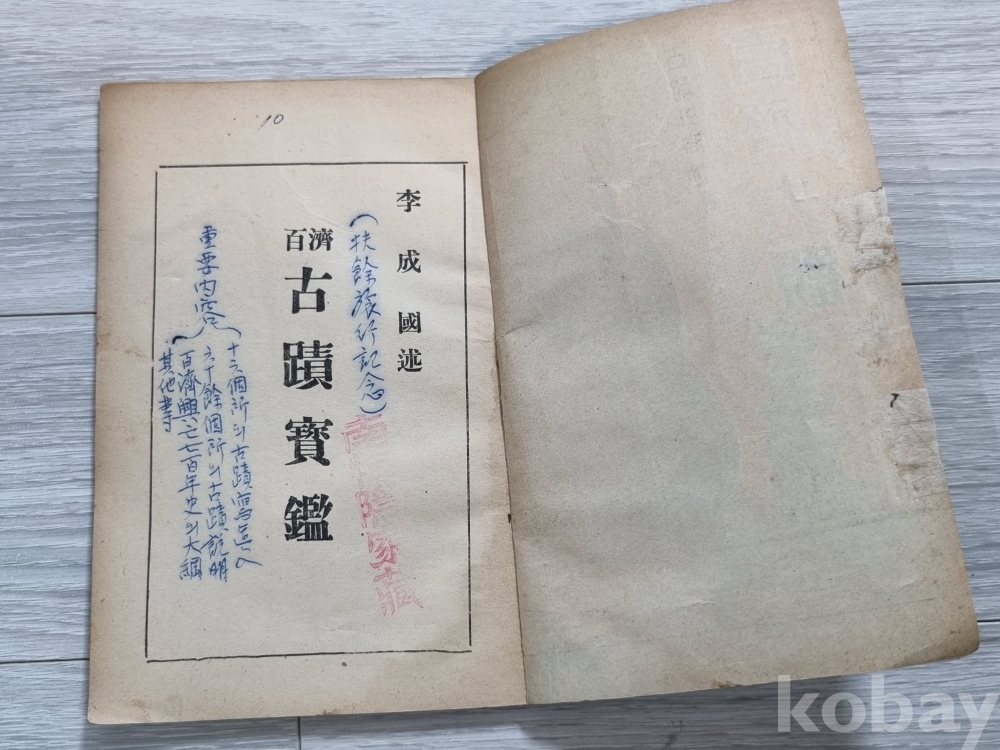 10
李成國述
(扶餘旅行記念)
百濟
古蹟寶鑑
重要內容
十六個所의古蹟寫真入
六十餘個所의古蹟說明
百濟興亡七百年史의大綱
其他等
kobay